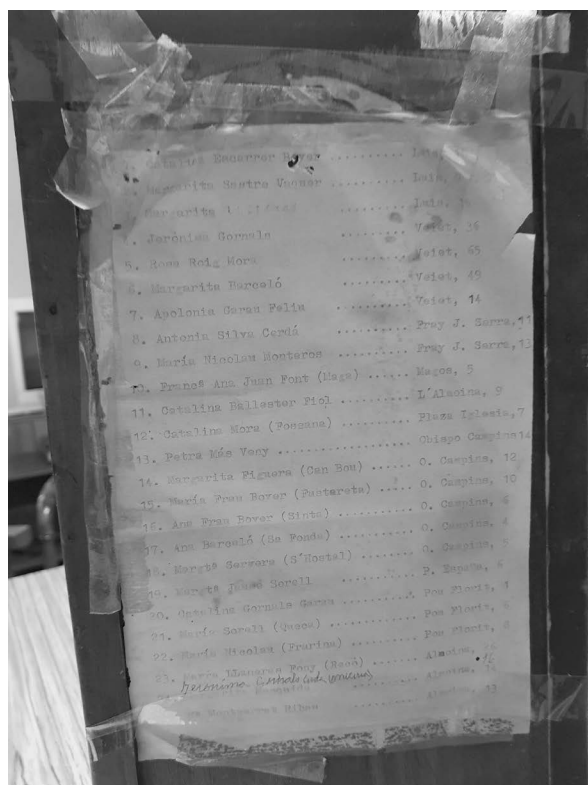 Catalina Escarrer Bover .......... Luis,
Margarita Sastre Vaquer .......... Luis,
Margarita .......... Luis,
4. Jerónima Gornals .......... Veiet, 36
5. Rosa Roig Mora Veiet, 65
6. Margarita Barceló .......... Veiet, 49
7. Apolonia Garau Feliu .......... Veiet, 14
8. Antonia Silva Cerdá .......... Fray J. Serra, 11
9. María Nicolau Monteros .......... Fray J. Serra, 13
10. Francª Ana Juan Font (Mage) ...... Magos, 5
11. Catalina Ballester Fiol .......... L'Alacina, 9
12. Catalina Mora (Fosgana) .......... Plaza Iglesia, 7
13. Petra Más Veny .................... Obispo Campins 14
14. Margarita Figuera (Can Bou) ...... O. Campins, 12
15. María Fras Bover (Pastareta) ..... O. Campins, 10
16. Ana Fras Bover (Sinta) .......... O. Campins, 6
17. Ana Barceló (Se Fonda) .......... O. Campins, 4
18. Margtª Servera (S'Hostal) ........ O. Campins, 5
19. Margtª Jaumé Sorell .......... P. España, 6
20. Catalina Gornals Garau .......... Pou Florit, 4
21. María Sorell (Queca) .......... Pou Florit, 6
22. María Nicolau (Frarina) .......... Pou Florit, 8
23. Llaneras (Recó) ...... Alacina, 16
Jerónima 16
Alacina, 14
Montserrat Ribas .......... Alacina, 13